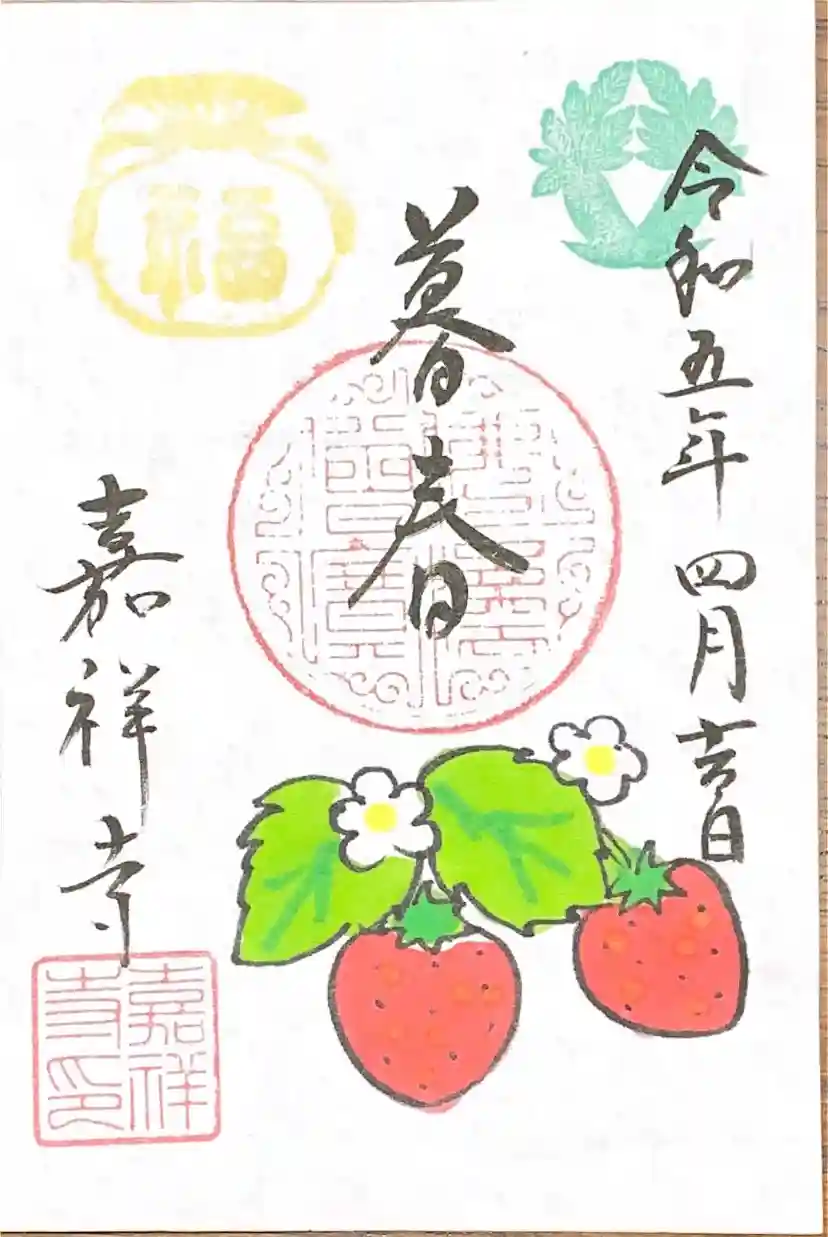 令和五年 四月吉日
暮春
嘉祥寺
福
嘉祥
寺印